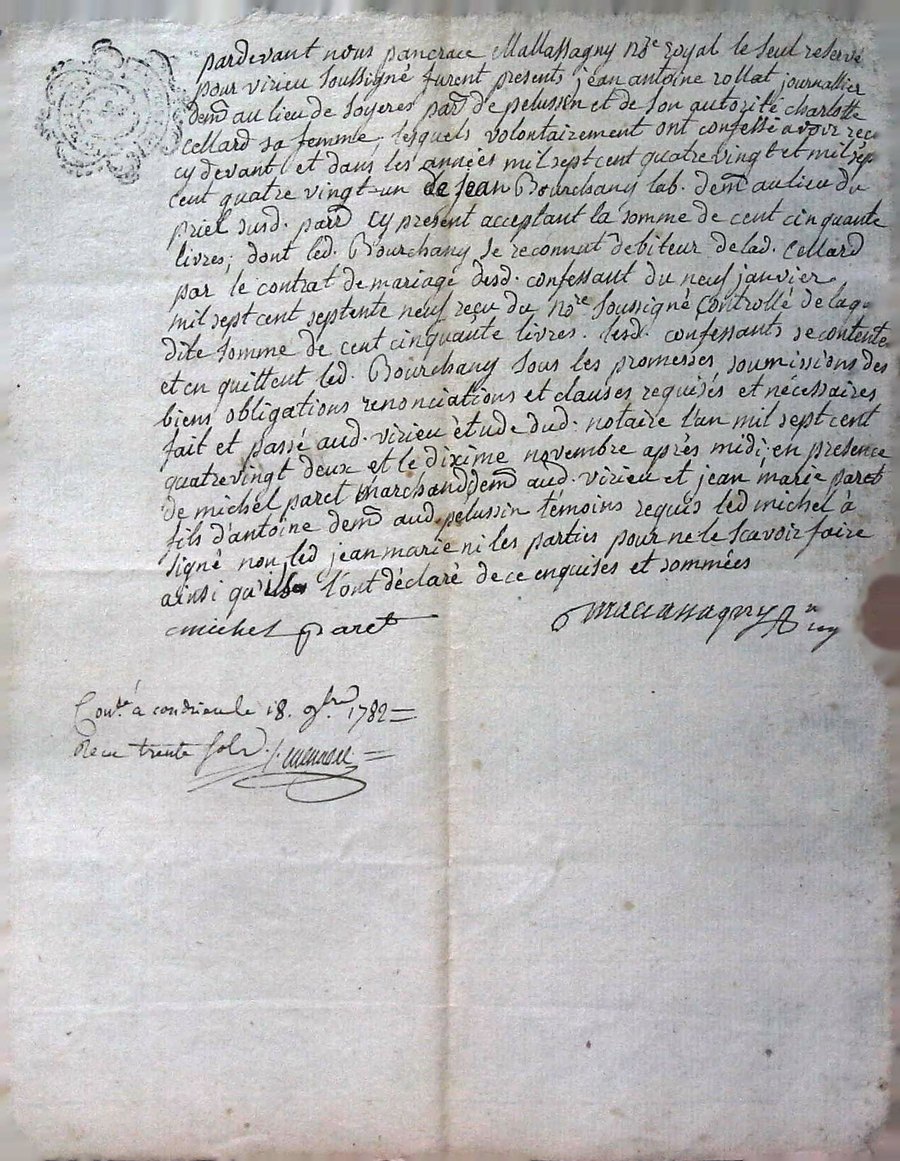 pardevant nous pancrace Mallassagny nre royal le seul reservé
pour virieu soussigné furent presents jean antoine rollat journallier
demt au lieu de soyeres parr de pelussin et de son autorité charlotte
cellard sa femme, lesquels volontairement ont confessé avoir reçu
cy devant et dans les années mil sept cent quatre vingt et mil sep
cent quatre vingt un de jean Bourchany lab. demt au lieu du
priel susd. parr cy present acceptant la somme de cent cinquante
livres; dont led. Bourchany se reconnut debiteur de lad. cellard
par le contrat de mariage desd. confessant du neuf janvier
mil sept cent septente neuf reçu du nore soussigné controllé de laq
dite somme de cent cinquante livres. lesd. confessants se contente
et en quittent led. Bourchany sous les promesses soumissions des
biens obligations renonciations et clauses requises et nécessaires
fait et passé aud. virieu étude dud. notaire l'an mil sept cent
quatrevingt deux et le dixime novembre après midi. en presence
de michel paret marchand demt aud. virieu et jean marie paret
fils d'antoine demt aud. pelussin témoins requis led michel à
signé non led jean marie ni les parties pour ne le scavoir faire
ainsi qu'ils l'ont déclaré de ce enquises et sommées
michel paret
Conlé à condrieu le 18. 9bre 1782
Recu trente sols.